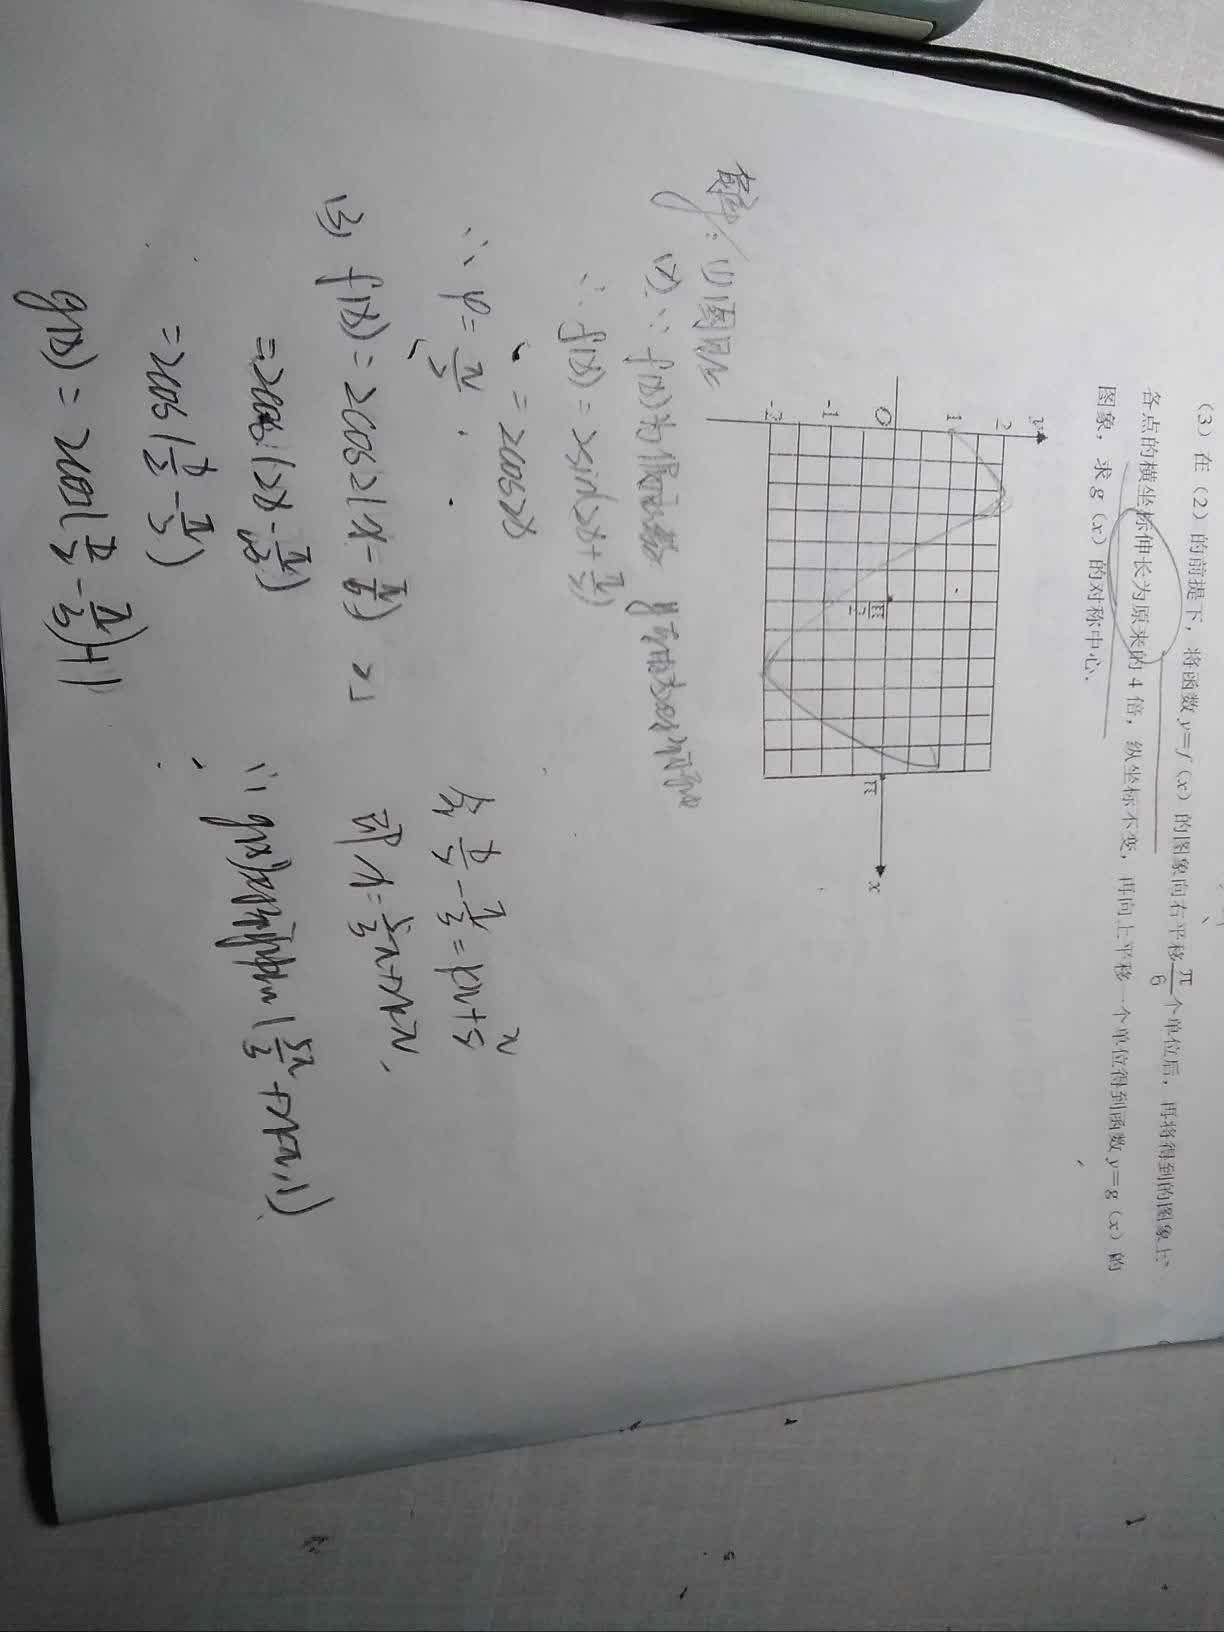 （3）在（2）的前提下，将函数y＝f（x）的图象向右平移π/6个单位后，再将得到的图象上
各点的横坐标伸长为原来的4倍，纵坐标不变，再向上平移一个单位得到函数y＝g（x）的
图象，求g（x）的对称中心.
y
2
1
O
π/2
π
x
-1
-2
(1)图见
(2)∵f(x)为偶函数 y轴为
∴f(x)=2sin(2x+π/2)
=2cos2x
∴φ=π/2
(3) f(x)=2cos2(x-π/6)
=2cos(2x-π/3)
=2cos(x/2-π/3)
g(x)=2cos(x/2-π/3)+1
令x/2-π/3=kπ+π/2
即x=5π/3+2kπ
∴g(x)的对称中心(5π/3+2kπ,1)